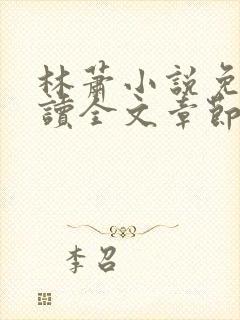 林蕭小說免
讀全文章節
李召